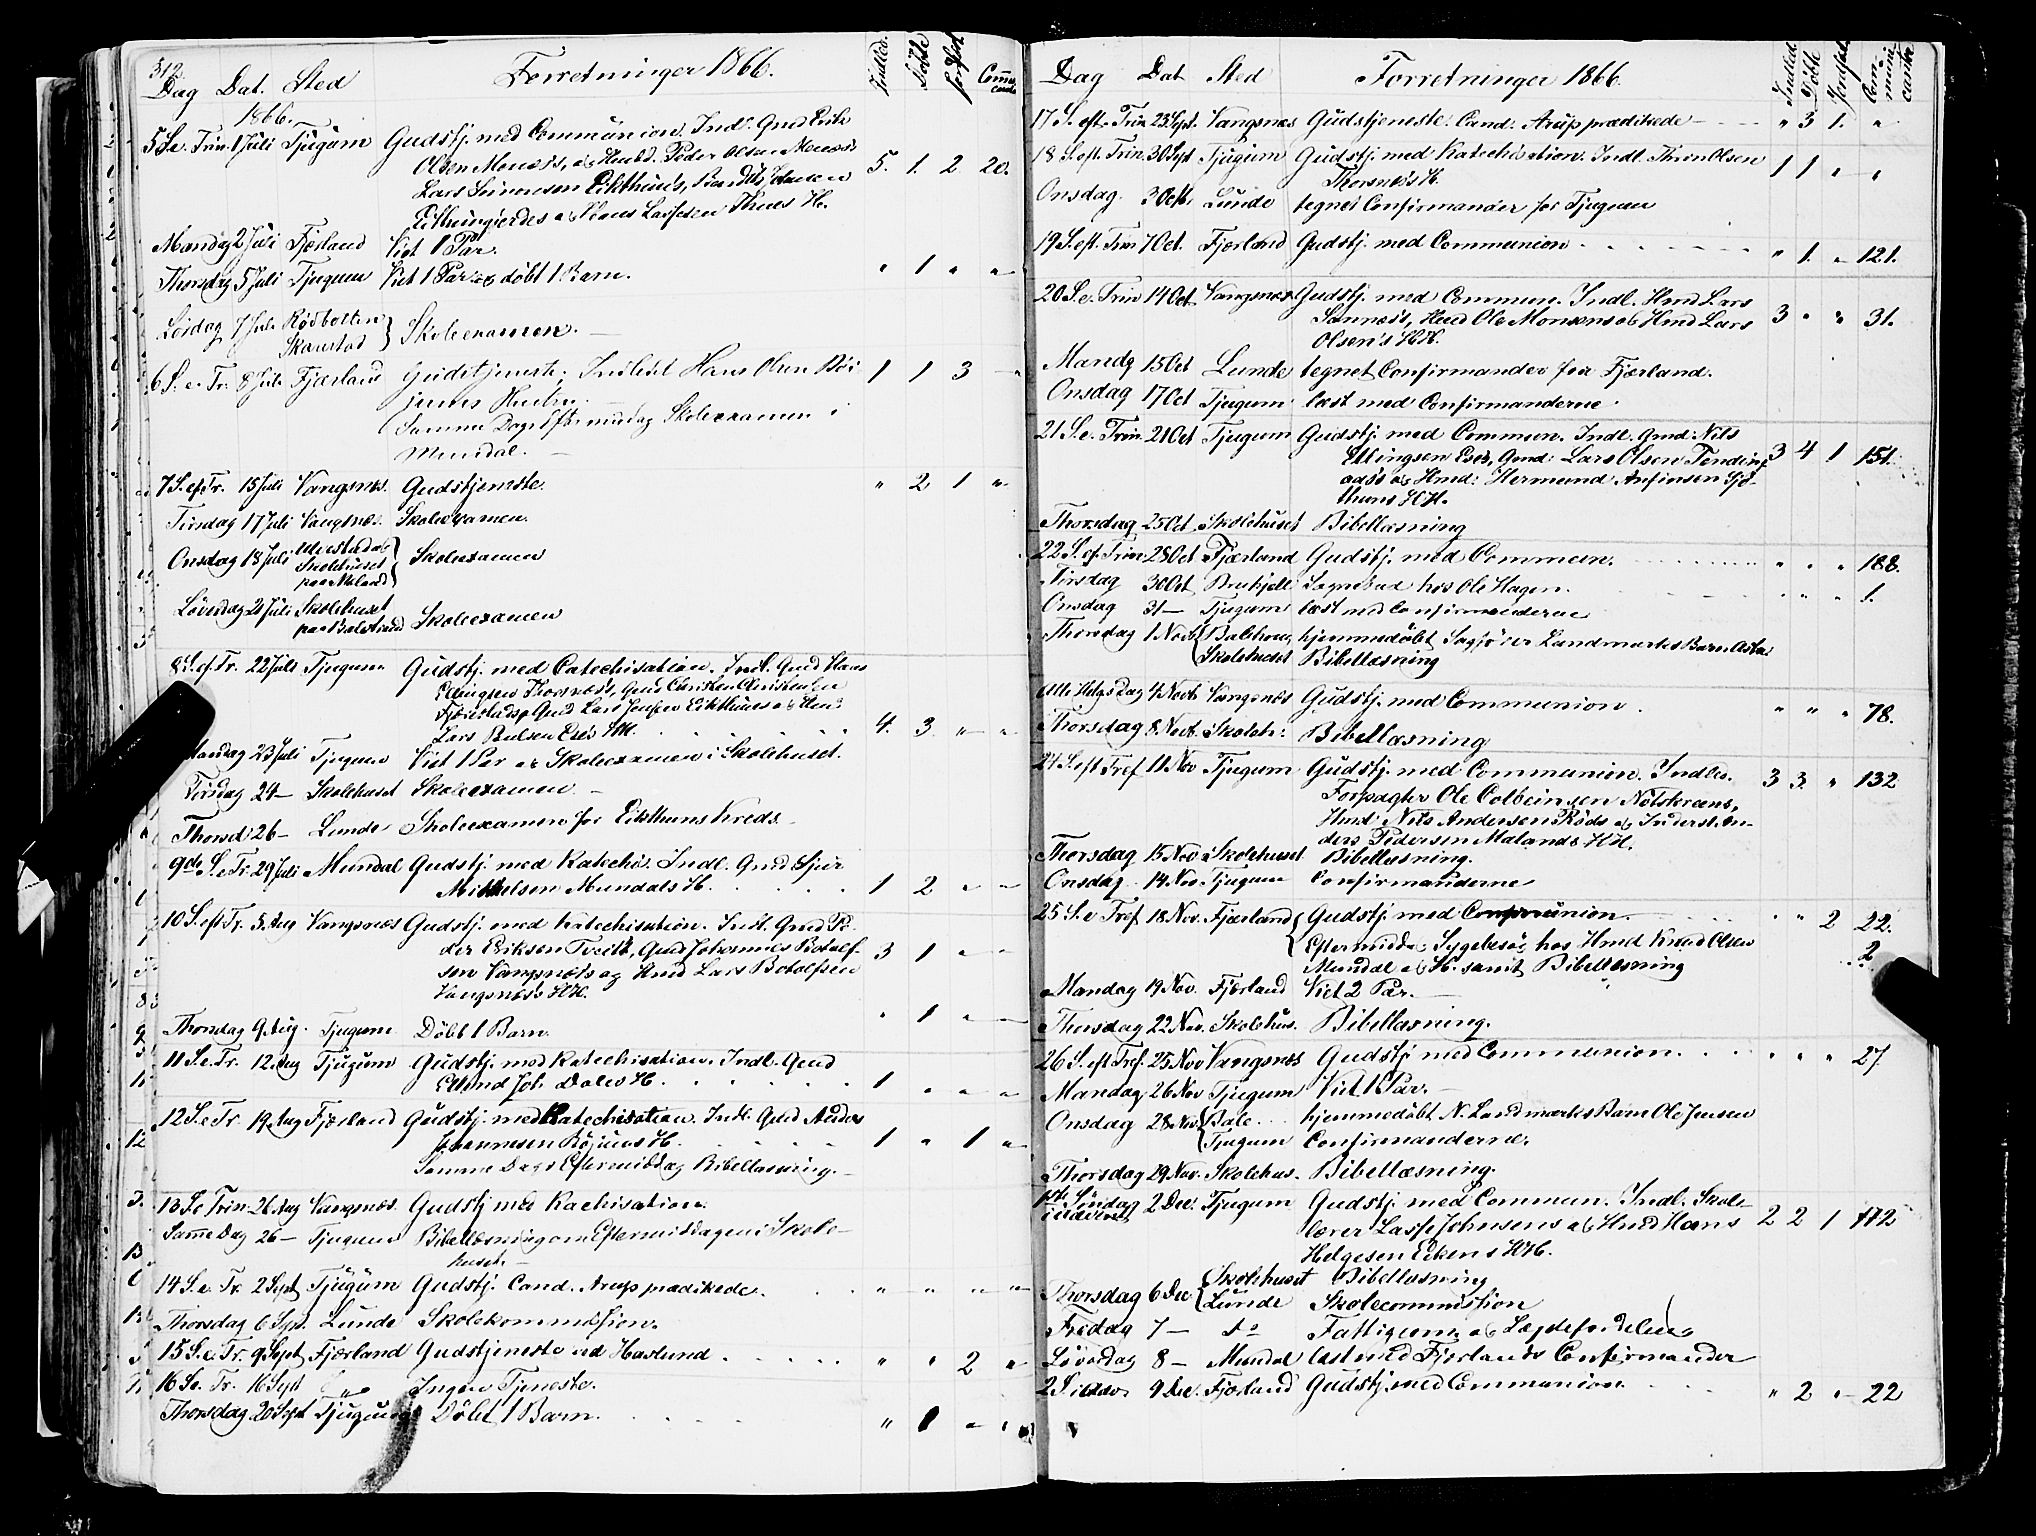 312.
Dag Dat. Sted Forretninger 1866. Indled. Döbte Jordfst Communicanter
1866.
5 S.e. Trin. 1 Juli Tjugum Gudstj. med Communion. Indl. Gmd Erik
Olsen Menæs's, og Husbd. Peder Olsen Menæs's
Lars Simonsen Eikthun's, Johnsen 5. 1. 2 20.
og Larssen Thues H.
Mandag 2 Juli Fjærland Viet 1 Par.
Thorsdag 5 Juli Tjugum Viet 1 Par og döbt 1 Barn. " 1 " "
Løsdag 7 Juli Rödbotten
Skarestad } Skoleexamen.
6 S. e. Tr. 8 Juli Fjærland Gudstjeneste; Indledet Hans Olsen Böi- 1 1 3 "
jums Hustru.
Samme Dags Eftermiddag Skoleexamen i
Mundal.
7 S. ef. Tr. 15 Juli Vangsnæs. Gudstjeneste. " 2 1 "
Tirsdag 17 Juli Vangsnæs. Skoleexamen.
Onsdag 18 Juli
Skolehuset
paa Maland } Skoleexamen
Løverdag 21 Juli Skolehuset
paa Balestrand Skoleexamen
8 S. ef. Tr. 22 Juli Tjugum Gudstj. med Catechisation. Indl. Gmd Hans
Ellingsen Thorsnæs's, Gmd Christen Christensen
Gmd Lars Eikthuns og Hmd
Lars Ese's HH. 4. 3 " "
Mandag 23 Juli Tjugum Viet 1 Par og Skoleexamen i Skolehuset.
Tirsdag 24 — Skolehuset Skoleexamen
Thorsd. 26 — Lunde Skoleexamen for Eikthuns Kreds.
9de S. e Tr. 29 Juli Mundal Gudstj. med Katechis. Indl. Gmd Sjur
Mikkelsen Mundals H. 1 2 " "
10 S. eft Tr. 5. Aug Vangsnæs Gudstj. med Katechisation. Indl. Gmd Pe-
der Eriksen Tveit's, Gmd Johannes Botolf- 3 1 " "
sen Vangsnæs's og Hmd Lars Botolfsen
Vangsnæs's HH.
Thorsdag 9. Aug. Tjugum Döbt 1 Barn. " 1 " "
11 S. e. Tr. 12. Aug Tjugum Gudstj. med Katechisation. Indl. Gmd
Ellend Joh. Dales H. 1 " " "
12 S. e Tr. 19 Aug Fjærland Gudstj. med Katechisation. Indl. Gmd Anders
Johannesen Böjums H. 1 " 1 "
Samme Dags Eftermiddag Bibellæsning.
13 S. e Trin. 26 Aug Vangsnæs. Gudstj med Kachisation.
Samme Dag 26 — Tjugum Bibellæsning om Eftermiddagen i Skole-
huset.
14 S. e. Tr. 2 Sept Tjugum Gudstj. Cand. Arup prædikede. " " " "
Thorsdag 6 Sept. Lunde Skolekommission.
15 S. e. Tr. 9 Sept Fjærland Gudstjeneste ved Haslund " " 2 "
16 S. e. Tr. 16 Sept " Ingen Tjeneste.
Thorsdag 20 Sept Tjugum Döbt 1 Barn. " 1 " "
Dag Dat Sted Forretninger 1866. Indled Döbte Jordfst Communicanter
17 S. eft. Trin 23 Sept. Vangsnæs Gudstjeneste. Cand: Arup prædikede " 3 1. "
18 S. eft. Trin. 30 Sept Tjugum Gudstj. med Katechisation. Indl. Olsen 1 1 " "
Thorsnæs's H.
Onsdag 3 Oct. Lunde tegnet Confirmander for Tjugum
19 S. eft. Trin 7 Oct. Fjærland Gudstj. med Communion " 1. " 121.
20 S. e. Trin 14 Oct. Vangsnæs Gudstj. med Commun. Indl. Hmd Lars
Sannæs's, Hmd Ole Monsens og Hmd Lars 3 " " 31.
Olsen's HH.
Mandg 15 Oct Lunde tegnet Confirmander fra Fjærland.
Onsdag 17 Oct Tjugum læst med Confirmanderne.
21 S. e. Trin. 21 Oct Tjugum Gudstj. med Commun. Indl. Gmd: Nils
Ellingsen Ese's, Gmd: Lars Olsen 3 4 1 151.
og Hmd: Hermund Anfinsen
thuns HH.
Thorsdag 25 Oct. Skolehuset Bibellæsning
22 S. ef. Trin. 28 Oct Fjærland Gudstj. med Commun. " " " 188.
Tirsdag 30 Oct hos Ole Hagen. " " " 1.
Onsdag 31 — Tjugum læst med Confirmanderne
Thorsdag 1 Novb { hjemmedöbt Sagförer Landmarks Barn
Skolehuset Bibellæsning
Alle Helgs Dag 4 Novb. Vangsnæs Gudstj. med Communion. " " " 78.
Thorsdag 8 Novb. Skoleh: Bibellæsning
24 S. eft Tref 11 Nov Tjugum Gudstj. med Communion. Indled. 3 3. " 132
Forpagter Ole Colbeinsen
Hmd: Nils Andersen Röds og Inderst An-
ders Pedersen Malands HH.
Thorsdag 15 Nov Skolehuset Bibellæsning.
Onsdag 14 Nov Tjugum Confirmanderne
25 S. e Tref 18 Nov. Fjærland { Gudstj. med Communion. " " 2 22.
Eftermidda. Sygebesög hos Hmd Knud Olsen
Mundal og H. samt Bibellæsning 2
Mandag 19 Nov. Fjærland Viet 2 Par.
Thorsdag 22 Nov. Skolehus. Bibellæsning.
26 S. eft Tref. 25 Nov Vangsnæs Gudstj med Communion. " " " 27.
Mandag 26 Nov Tjugum Viet 1 Par.
Onsdag 28 Nov. { Bale hjemmedöbt N. Landmarks Barn Ole Jensen
Tjugum Confirmanderne.
Thorsdag 29 Nov. Skolehus. Bibellæsning.
1ste Söndag 2 Dec. Tjugum Gudstj. med Commun. Indl. Skole-
i advent lærer Lasse Johnsens og Hmd Hans 2 2 1 112
Helgesen HH.
Thorsdag 6 Dec. { Skolehuset Bibellæsning
Lunde Skolecommission
Fredag 7 — do Fattigcom. og Lægdefordeling
Löverdag 8 — Mundal læst med Fjærlands Confirmander
2 S i adv. 9 Dec. Fjærland Gudstj. med Communion. " 2 " 22